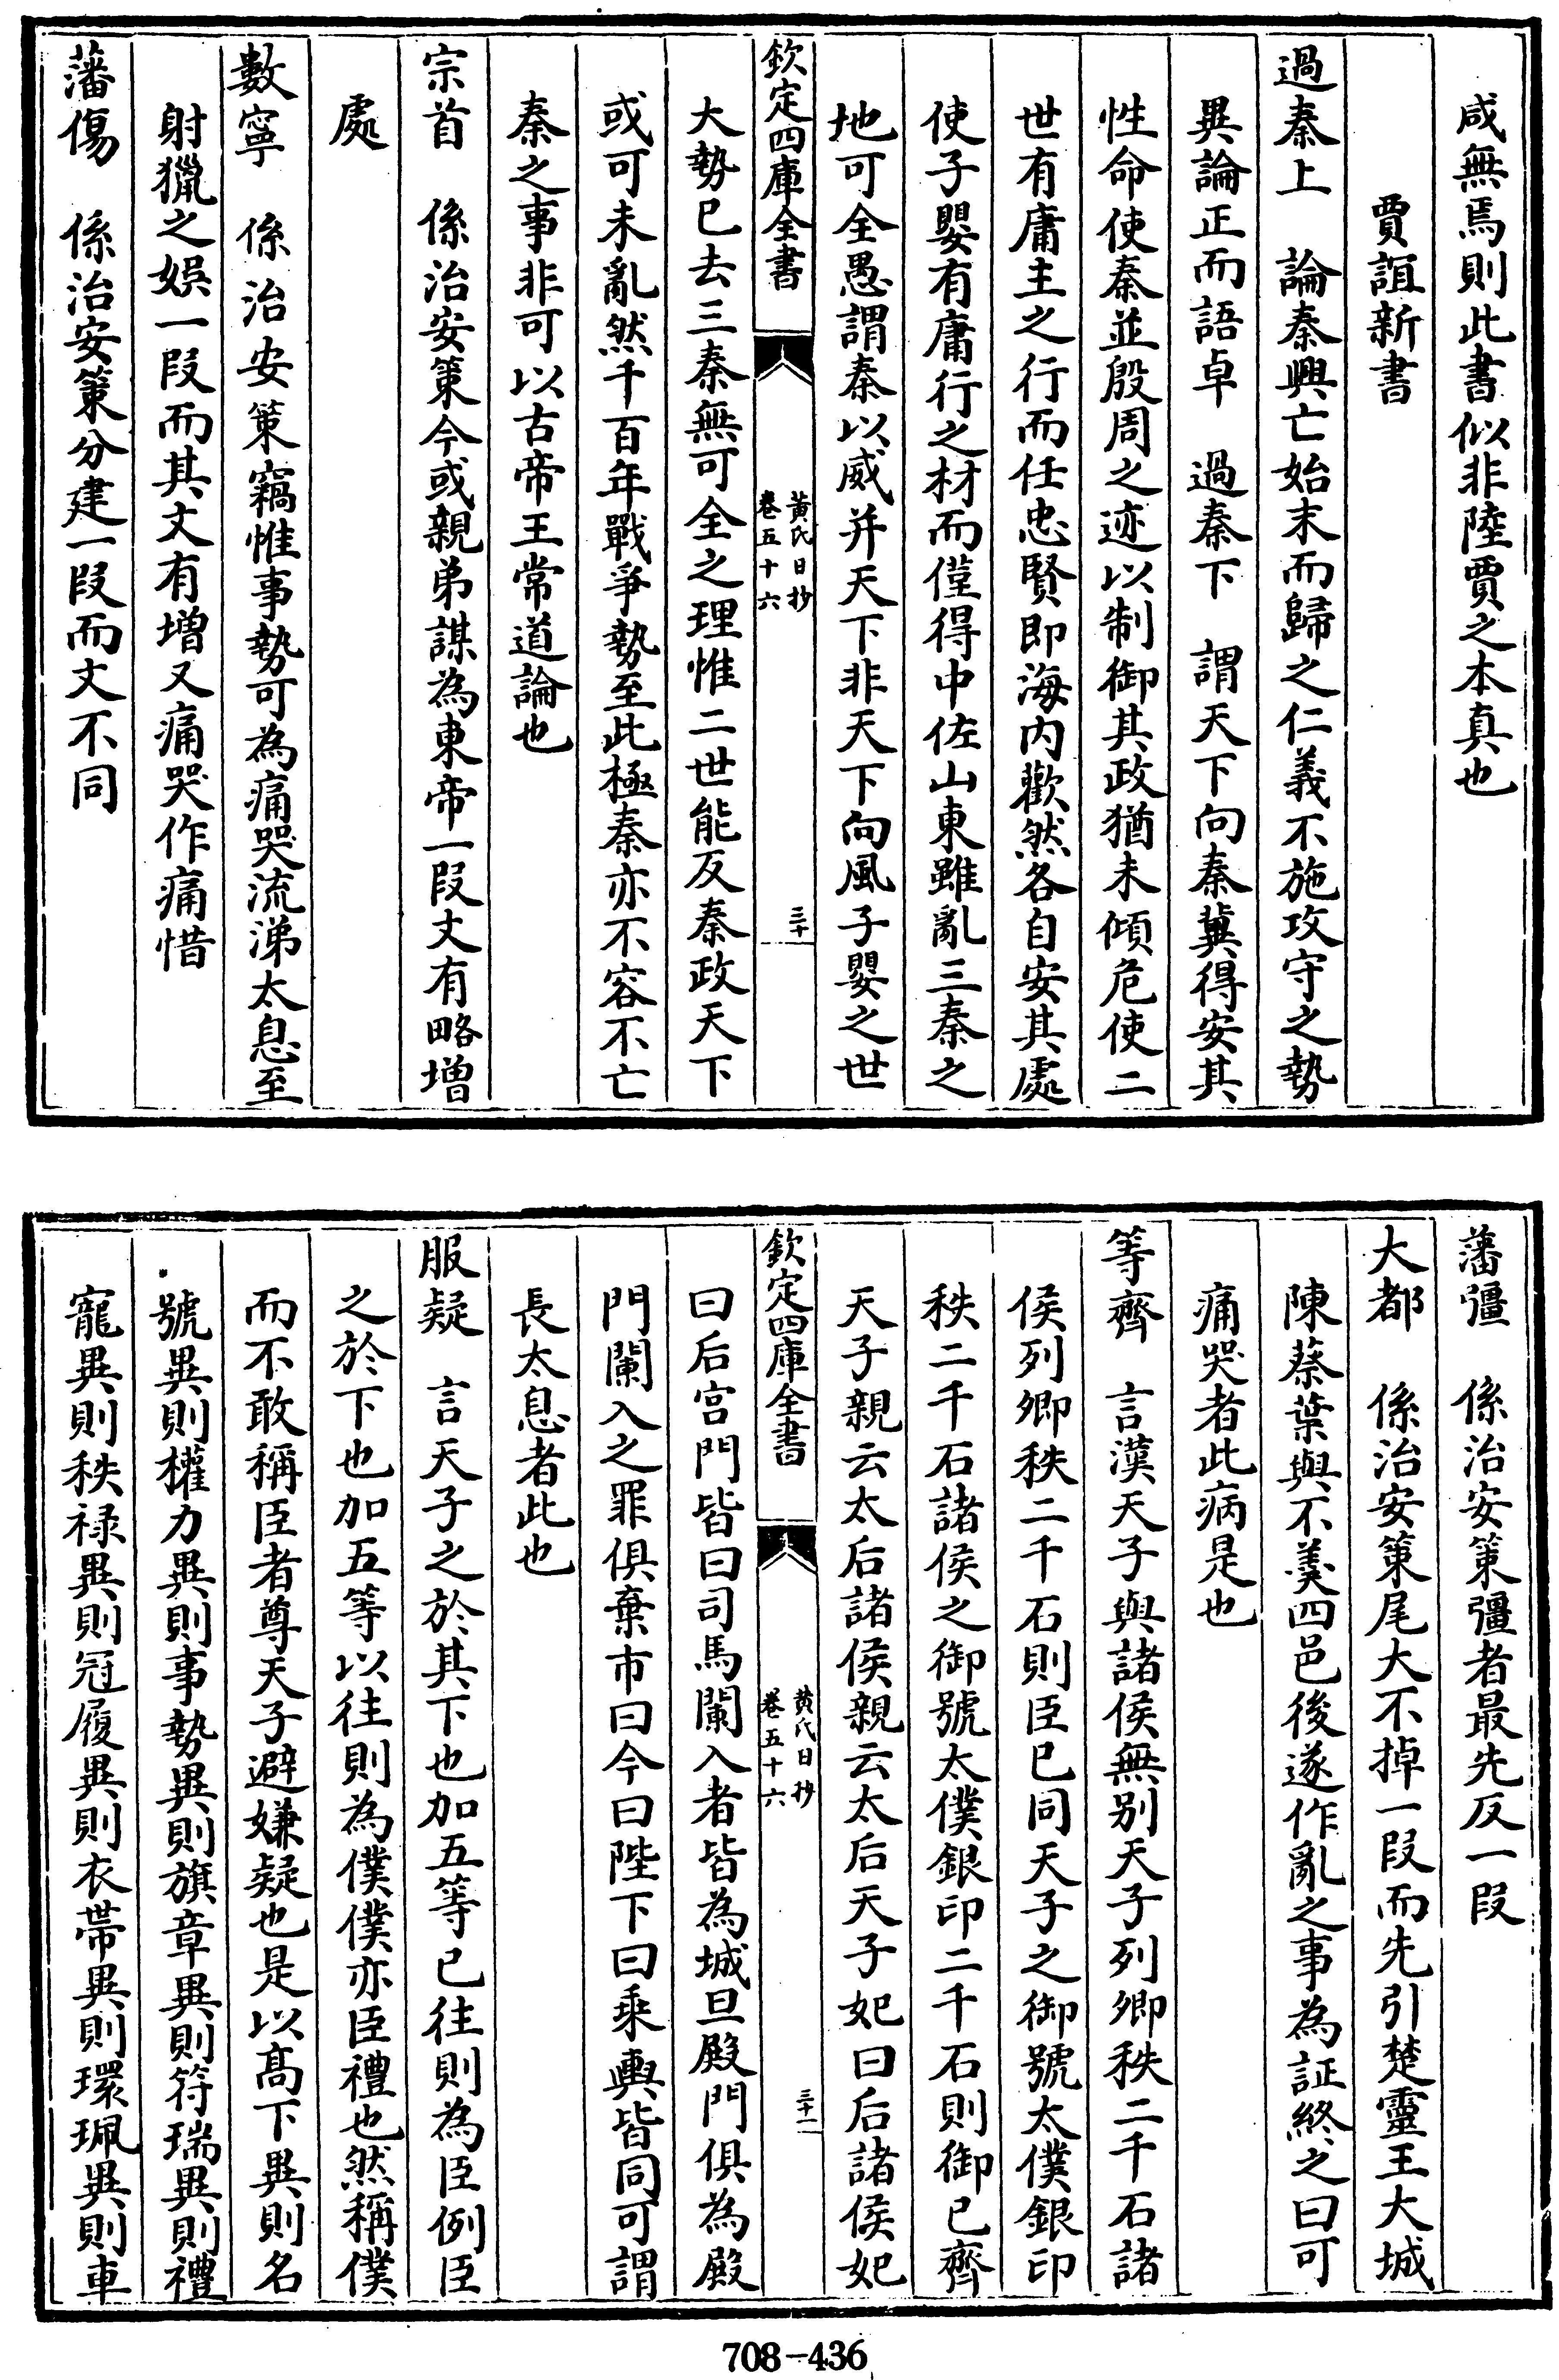 咸無焉則此書似非陸賈之本真也
賈誼新書
過秦上　論秦興亡始末而歸之仁義不施攻守之勢
異論正而語卓　過秦下　謂天下向秦冀得安其
性命使秦並殷周之迹以制御其政猶未傾危使二
世有庸主之行而任忠賢即海内歡然各自安其處
使子嬰有庸行之材而僅得中佐山東雖亂三秦之
地可全愚謂秦以威并天下非天下向風子嬰之世
欽定四庫全書
黄氏日抄
卷五十六
三十
大勢已去三秦無可全之理惟二世能反秦政天下
或可未亂然千百年戰爭勢至此極秦亦不容不亡
秦之事非可以古帝王常道論也
宗首　係治安策今或親弟謀為東帝一段文有略增
處
數寧　係治安策竊惟事勢可為痛哭流涕太息至
射獵之娛一段而其文有增又痛哭作痛惜
藩傷　係治安策分建一段而文不同
藩彊　係治安策彊者最先反一段
大都　係治安策尾大不掉一段而先引楚靈王大城
陳蔡葉與不羹四邑後遂作亂之事為証終之曰可
痛哭者此病是也
等齊　言漢天子與諸侯無别天子列卿秩二千石諸
侯列卿秩二千石則臣已同天子之御號太僕銀印
秩二千石諸侯之御號太僕銀印二千石則御已齊
天子親云太后諸侯親云太后天子妃曰后諸侯妃
欽定四庫全書
黄氏日抄
卷五十六
三十一
曰后宫門皆曰司馬闌入者皆為城旦殿門俱為殿
門闌入之罪俱棄市曰令曰陛下曰乘輿皆同可謂
長太息者此也
服疑　言天子之於其下也加五等已往則為臣例臣
之於下也加五等以往則為僕僕亦臣禮也然稱僕
而不敢稱臣者尊天子避嫌疑也是以髙下異則名
號異則權力異則事勢異則旗章異則符瑞異則禮
寵異則秩禄異則冠履異則衣帶異則環珮異則車
708-436